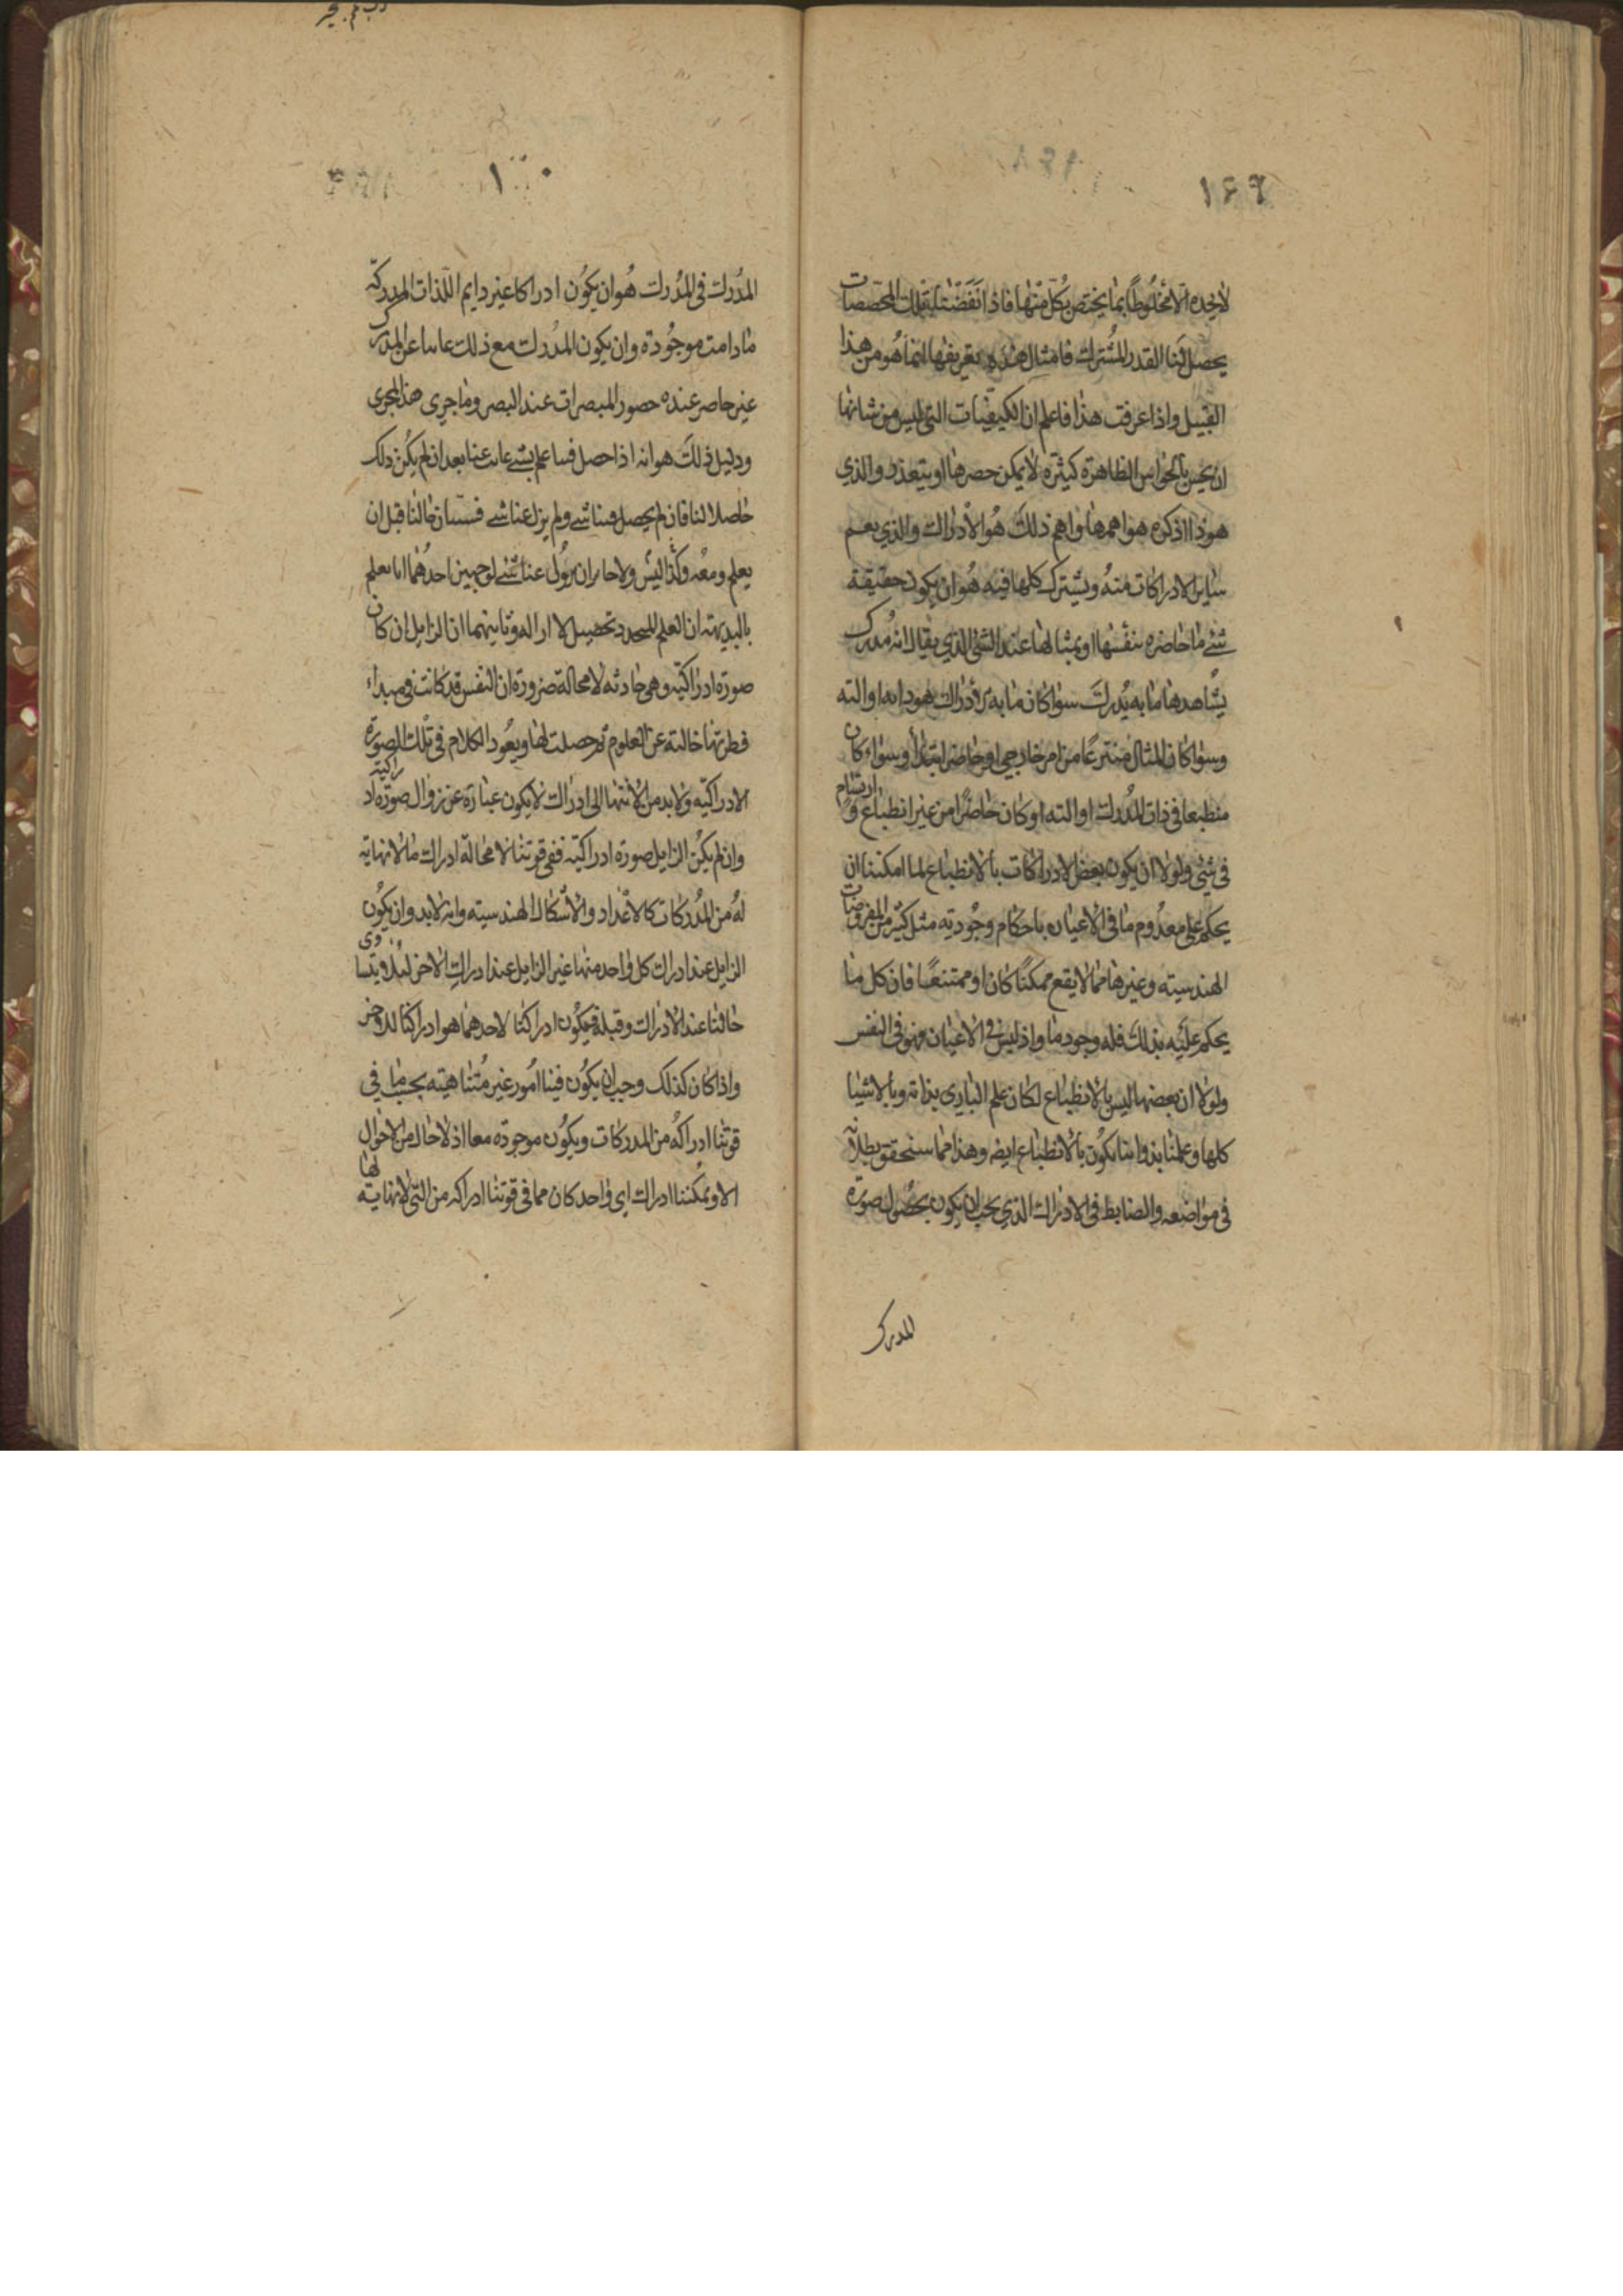 ١٤٢
لا نجده الا مخلوطًا بما يختص بكل منها فاذا نقصت تلك المخصصات
يحصل لنا القدر المشترك فامثال هذه تعريفها انما هو من هذا
القبيل واذا عرفت هذا فاعلم ان الكيفيات التي ليس من شانها
ان يحس بالحواس الظاهرة كثيرة لا يمكن حصرها او يتعذر والذي
هوذا اذكره هو اهمها واهم ذلك هو الادراك والذي يعم
ساير الادراكات منه ويشترك كلها فيه هو ان يكون حقيقة
شئ ما حاضره بنفسها او بمثالها عند الشئ الذي يقال انه مدرك
يشاهدها ما به يدرك سوا كان ما به الادراك هو ذاته او الته
وسوا كان المثال منتزعًا من امر خارجي او حاضر ابتداً وسواء كان
منطبعا في ذات المدرك او الته او كان حاضرًا من غير انطباع و ارتسام
في شئ ولولا ان يكون بعض الادراكات بالانطباع لما امكننا ان
يحكم على معدوم ما في الاعيان باحكام وجودية مثل كثير من المفروضات
الهندسيته وغيرها مما لا يقع ممكنًا كان او ممتنعًا فان كل ما
يحكم عليه بذلك فله وجود ما واذ ليس في الاعيان فهو في النفس
ولولا ان بعضها ليس بالانطباع لكان علم الباري بذاته وبالاشيا
كلها وعلمنا بذواتنا يكون بالانطباع ايضه وهذا مما سنحقق بطلانه
في مواضعه والضابط في الادراك الذي يجب ان يكون بحصول صورة
المدرك
١٠٠
المدرك في المدرك هو ان يكون ادراكا غير دايم للذات المدركة
ما دامت موجودة وان يكون المدرك مع ذلك غايبا عن المدرك
غير حاضر عنده حضور المبصرات عند البصر وما جرى هذا المجرى
ودليل ذلك هو انه اذا حصل فينا علم بشئ غايب عنا بعد ان لم يكن ذلك
حاصلا لنا فان لم يحصل فينا شئ ولم يزل عنا شئ فسيان حالنا قبل ان
يعلم ومعه وكذا ليس ولا جايز ان يزول عنا شئ لوجهين احدهما انا نعلم
بالبديهة ان العلم المتجدد تحصيل لا ازاله وثانيهما ان الزايل ان كان
صورة ادراكيته وهي حادثه لا محالة ضرورة ان النفس قد كانت في مبداء
فطرتها خالية عن العلوم ثم حصلت لها ويعود الكلام في تلك الصورة
الادراكيته ولا بد من الانتها الى ادراك لا يكون عبارة عن زوال صورة ادراكية
وان لم يكن الزايل صورة ادراكيته ففي قوتنا لا محالة ادراك ما لا نهاية
له من المدركات كالاعداد والاشكال الهندسيته وانه لا بد وان يكون
الزايل عند ادراك كل واحد منها غير الزايل عند ادراك الاخر لئلا ويتساوى
حالتنا عند الادراك وقبله فيكون ادراكنا لاحدهما هو ادراكنا للاخر
واذا كان كذلك وجب ان يكون فينا امور غير متناهيته بحسب ما في
قوتنا ادراكه من المدركات ويكون موجودة معا اذ لا حال من الاحوال
الا ويمكننا ادراك اي واحد كان مما في قوتنا ادراكه من التي لا نهاية لها